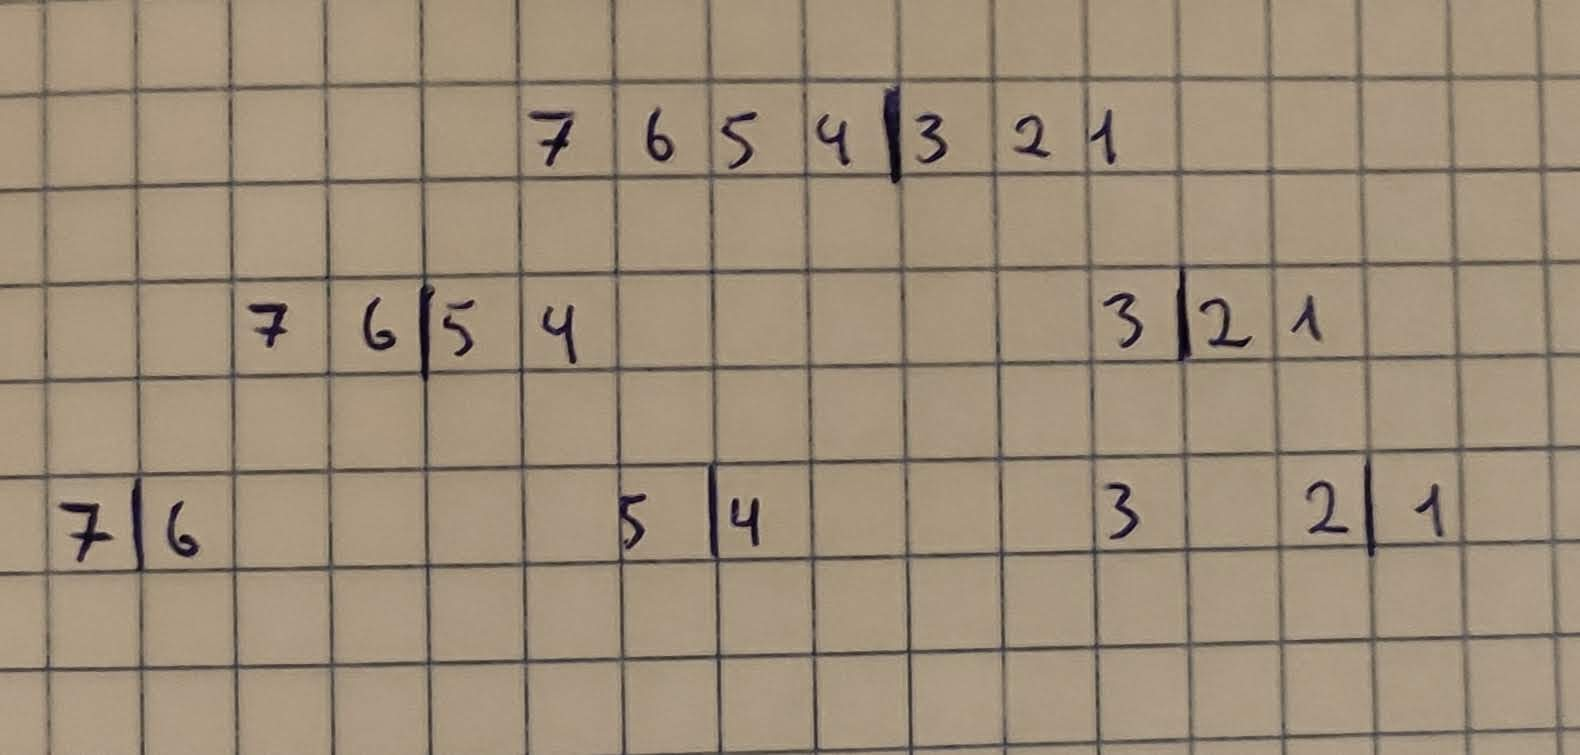 7 6 5 4 | 3 2 1
7 6 | 5 4 3 | 2 1
7 | 6 5 | 4 3 2 | 1